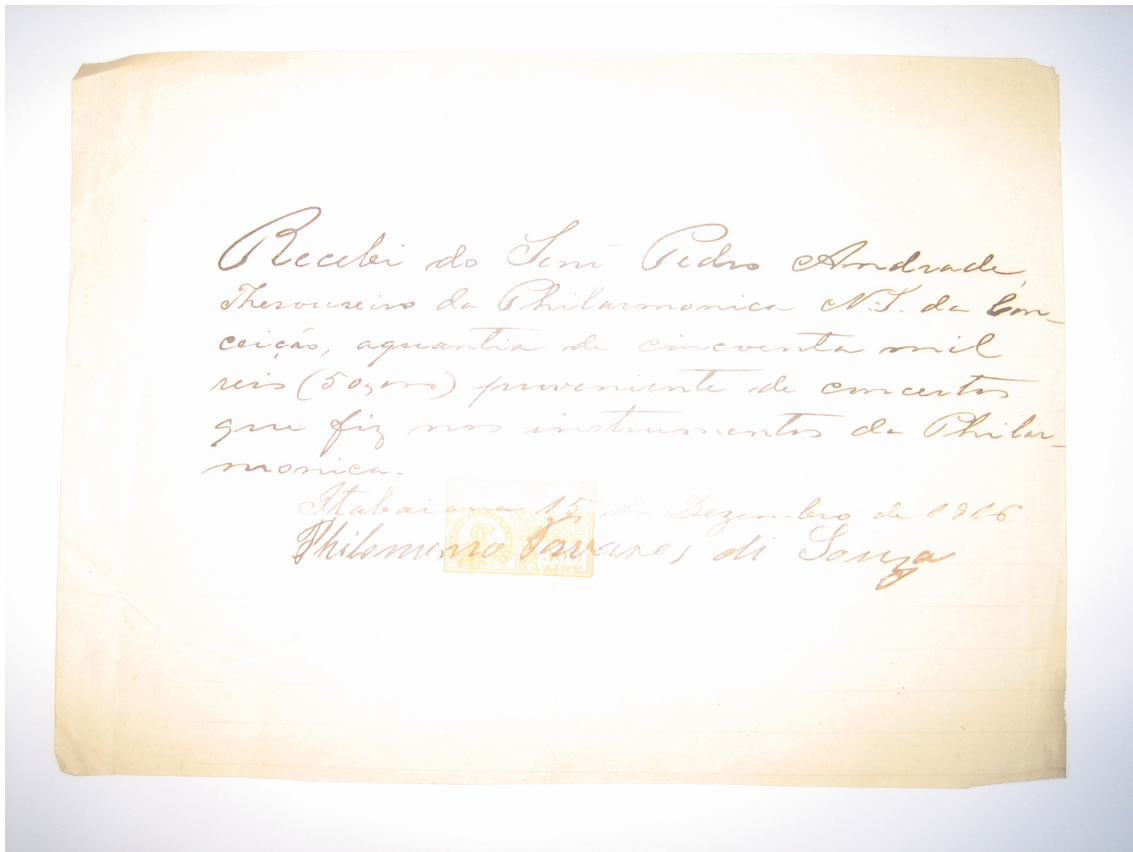 Recebi do Senr Pedro Andrade,
Thesoureiro da Philarmonica N. S. da Con-
ceição, aquantia de cincoenta mil
reis (50$000) proveniente de concertos
que fiz nos instrumentos da Philar-
monica.
Itabaiana 15 de Dezembro de 1916
Philomeno Tavares di Souza